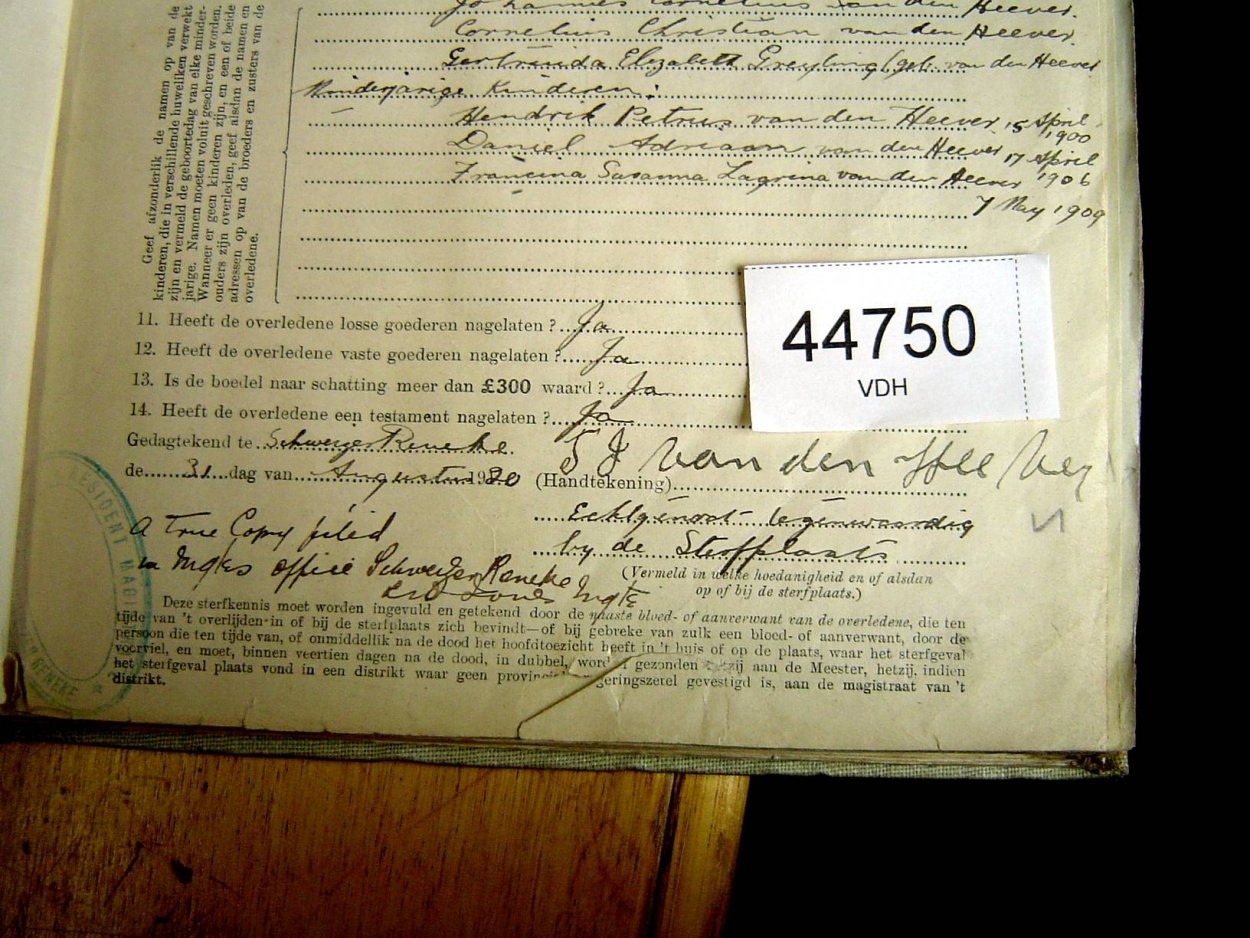 Johannes Cornelius van den Heever.
Cornelius Christian van den Heever.
Gertruida Elizabett Greyling (geb. van den Heever
Minderjarige Kinderen:
Hendrik Petrus van den Heever 15 April 1900
Daniel Adriaan van den Heever 17 April 1906
Francina Susanna Lagrina van den Heever 7 May 1909
Geef afzonderlik de namen op van de
kinderen, die in verschillende huweliken verwekt
zijn en vermeld de geboortedag van elke minder-
jarige. Namen moeten voluit geschreven worden.
Wanneer er geen kinderen zijn, en een of beide
ouders zijn overleden, geef alsdan de namen en
adressen op van de broeders en zusters van de
overledene.
11. Heeft de overledene losse goederen nagelaten? Ja
12. Heeft de overledene vaste goederen nagelaten? Ja
13. Is de boedel naar schatting meer dan £300 waard? Ja
14. Heeft de overledene een testament nagelaten? Ja
44750
VDH
Gedagtekend te Schweizer Reneke.
de 31 dag van Augustus 1920
S J van den Heever
(Handtekening)
Echtgenoot tegenwoordig
by de Sterfplaats
(Vermeld in welke hoedanigheid en of alsdan
op of bij de sterfplaats.)
A True Copy filed
in Mgts office Schweizer Reneke
Mgte
RESIDENT MAGI
RENEKE
Deze sterfkennis moet worden ingevuld en getekend door de naaste bloed- of aanverwant van de overledene, die ten
tijde van 't overlijden in of bij de sterfplaats zich bevindt—of bij gebreke van zulk een bloed- of aanverwant, door de
persoon die ten tijde van, of onmiddellik na de dood het hoofdtoezicht heeft in 't huis of op de plaats, waar het sterfgeval
voorviel, en moet, binnen veertien dagen na de dood, in dubbel, word gezonden hetzij aan de Meester, hetzij, indien
het sterfgeval plaats vond in een distrikt waar geen geringszetel gevestigd is, aan de magistraat van 't
distrikt.